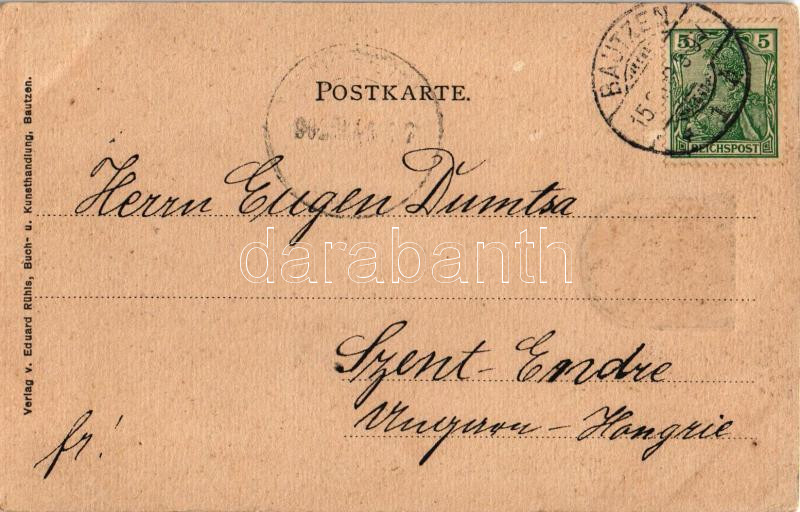 BAUTZEN
5 5
REICHSPOST
POSTKARTE.
Herrn Eugen Dumtsa
darabanth
Szent-Endre
Ungarn-Hongrie
fr!
Verlag v. Eduard Rühls, Buch- u. Kunsthandlung, Bautzen.